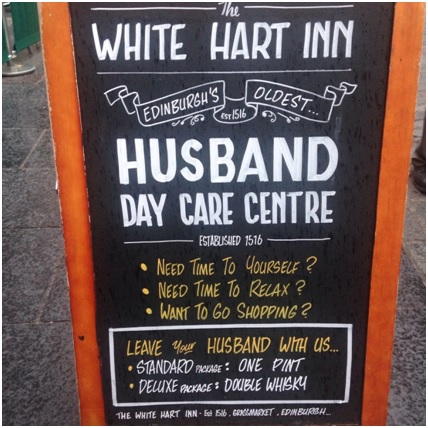 The
WHITE HART INN
EDINBURGH'S EST 1516 OLDEST...
HUSBAND
DAY CARE CENTRE
ESTABLISHED 1516
• NEED TIME TO YOURSELF?
• NEED TIME TO RELAX?
• WANT TO GO SHOPPING?
LEAVE your HUSBAND WITH US...
• STANDARD PACKAGE: ONE PINT
• DELUXE PACKAGE: DOUBLE WHISKY
THE WHITE HART INN - Est 1516. GRASSMARKET. EDINBURGH